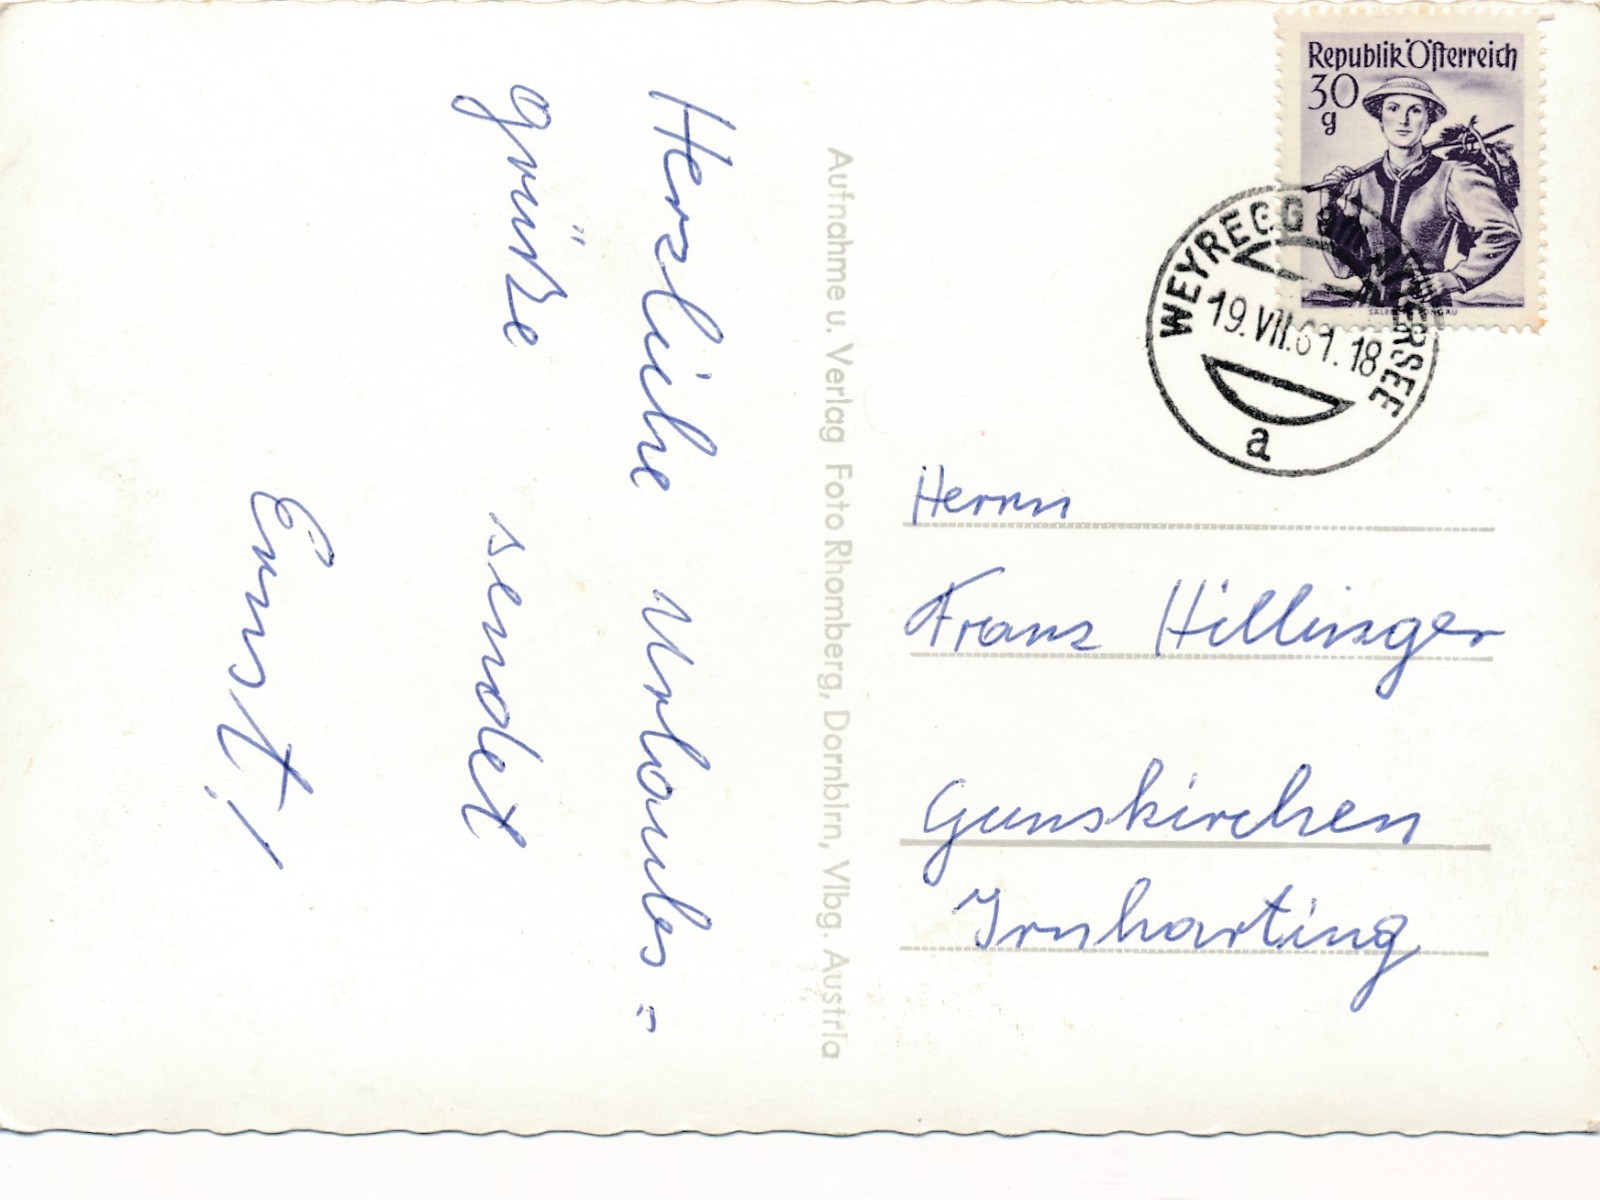 Herzliche Urlaubs=
grüße sendet
Ernst!
Aufnahme u. Verlag Foto Rhomberg, Dornbirn, Vlbg. Austria
Republik Österreich
30
g
WEYREGG AM ATTERSEE
19.VII.61.18
a
Herrn
Franz Hillinger
Gunskirchen
Irnharting